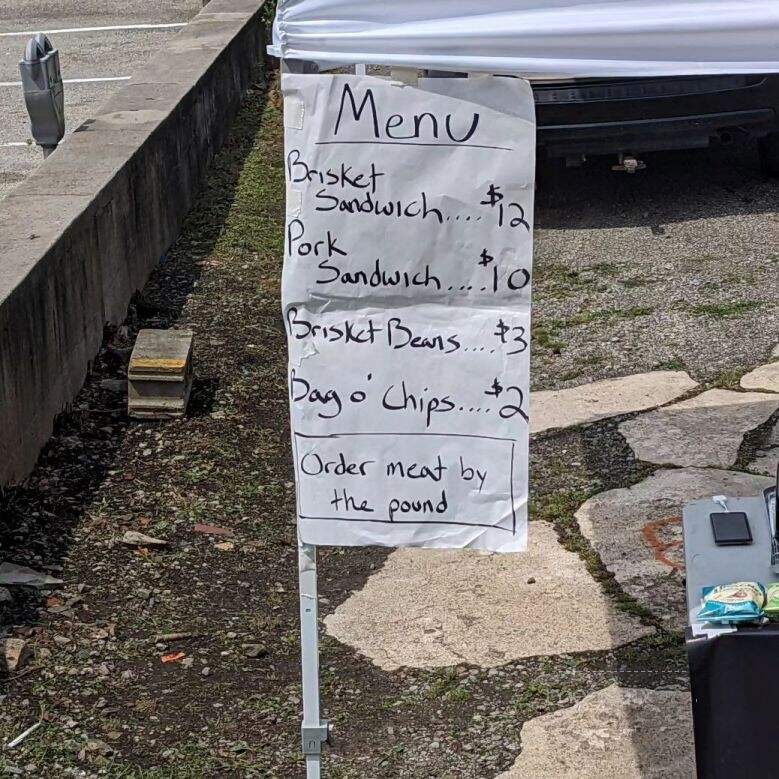 Menu
Brisket
Sandwich.... $12
Pork
Sandwich.... $10
Brisket Beans.... $3
Bag o' Chips.... $2
Order meat by
the pound